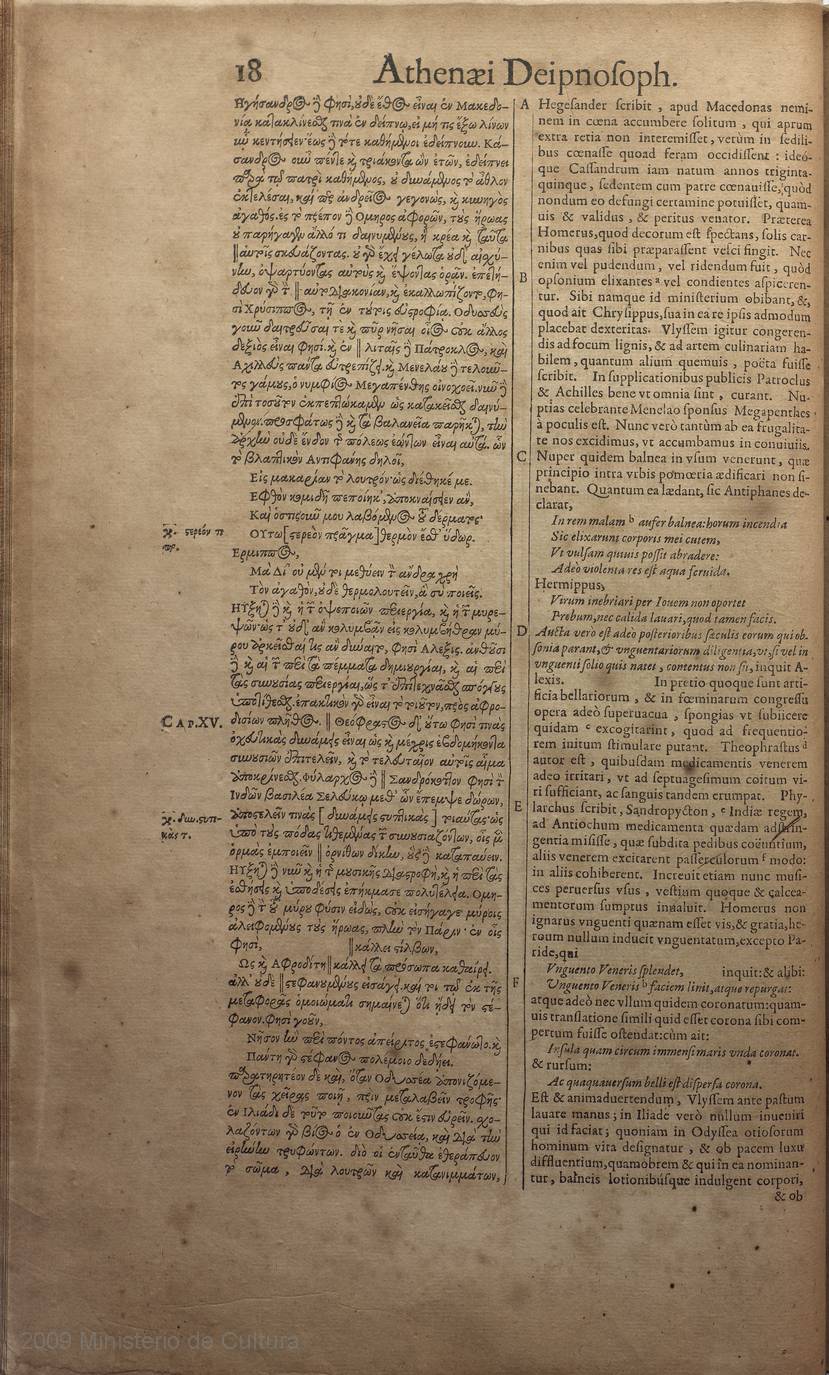 18 Athenæi Deipnosoph.
Ἡγήσανδρος δέ φησι, οὐδὲ ἔθος εἶναι ἐν Μακεδο-
νίᾳ κατακλίνεσθαί τινα ἐν δείπνῳ, εἰ μή τις ἔξω λίνων
ὗν κεντήσειεν· ἕως δὲ τότε καθήμενοι ἐδείπνουν. Κά-
σανδρος οὖν πέντε καὶ τριάκοντα ὢν ἐτῶν, ἐδείπνει
παρὰ τῷ πατρὶ καθήμενος, οὐ δυνάμενος τὸ ἆθλον
ἐκτελέσαι, καίπερ ἀνδρεῖος γεγονὼς, καὶ κυνηγὸς
ἀγαθός. ἐς τὸ πρέπον δὲ Ὅμηρος ἀφορῶν, τοὺς ἥρωας
οὐ παρήγαγεν ἄλλό τι δαινυμένους, ἢ κρέα καὶ ταῦτα
‖ αὑτοῖς σκευάζοντας. οὐ γὰρ ἔχει γέλωτα οὐδ' αἰσχύ-
νην, ὀψαρτύοντας αὐτοὺς καὶ ἕψοντας ὁρᾷν. ἐπετή-
δευον γὰρ τὴν ‖ αὐτοδιακονίαν, καὶ ἐκαλλωπίζοντο, φη-
σὶ Χρύσιππος, τῇ ἐν τούτοις εὐστροφίᾳ. Ὀδυσσεὺς
γοῦν δαιτρεῦσαί τε καὶ πῦρ νῆσαι οἷος οὐκ ἄλλος
δεξιὸς εἶναι φησί. καὶ ἐν ‖ λιταῖς δὲ Πάτροκλος, καὶ
Ἀχιλλεὺς πάντα εὐτρεπίζει. καὶ Μενελάου δὲ τελοῦν-
τος γάμους, ὁ νυμφίος Μεγαπένθης οἰνοχοεῖ. νῦν δὲ
ἐπὶ τοσοῦτον ἐκπεπτώκαμεν ὡς κατακεῖσθαι δαινύ-
μενοι. προσφάτως δὲ καὶ τὰ βαλανεῖα παρῆκται, τὴν
ἀρχὴν οὐδὲ ἔνδον τῆς πόλεως ἐώντων εἶναι αὐτά. ὧν
τὸ βλαπτικὸν Ἀντιφάνης δηλοῖ,
Εἰς μακαρίαν τὸ λουτρὸν· ὡς διέθηκέ με.
Ἑφθὸν κομιδῇ πεποίηκ', ἀποκναίσειεν ἂν,
Κἂν ὁστισοῦν μου λαβόμενος τοῦ δέρματος·
Οὕτω [στερεὸν πρᾶγμα] θερμὸν ἐσθ' ὕδωρ.
χρ. στερεόν τι
πρ.
Ἕρμιππος,
Μὰ Δί' οὐ μέντοι μεθύειν τὸν ἄνδρα χρὴ
Τὸν ἀγαθὸν, οὐδὲ θερμολουτεῖν, ἃ σὺ ποιεῖς.
Ηὔξηται δὲ καὶ ἡ τῶν ὀψοποιῶν περιεργία, καὶ ἡ τῶν μυρε-
ψῶν· ὡς τ' οὐδ' ἂν κολυμβᾶν εἰς κολυμβήθραν μύ-
ρου ἀρκεῖσθαί τις ἂν δύναιτο, φησὶν Ἄλεξις. ἀνθοῦσι
δὲ καὶ αἱ τῶν περὶ τὰ πέμματα δημιουργίαι, καὶ αἱ περὶ
τὰς συνουσίας περιεργίαι, ὥς τ' ἐπιτεχνᾶσθαι σπόγγους
ὑποτίθεσθαι. ἐπακτικὸν γὰρ εἶναι τὸ τοιοῦτον, πρὸς ἀφρο-
δισίων πλῆθος. ‖ Θεόφραστος δ' οὕτω φησὶ τινὰς
CAP.XV.
ὀχευτικὰς δυνάμεις εἶναι ὡς καὶ μέχρις ἑβδομήκοντα
συνουσιῶν ἐπιτελεῖν, καὶ τὸ τελευταῖον αὐτοῖς αἷμα
ἀποκρίνεσθαι. Φύλαρχος δὲ ‖ Σανδρόκοπτον φησὶ τὸν
Ἰνδῶν βασιλέα Σελεύκῳ μεθ' ὧν ἔπεμψε δώρων,
ἀποστεῖλέν τινας [ δυνάμεις στυτικὰς ] τοιαύτας· ὡς
χρ. δυν. στυτι-
κὰς τ.
ὑπὸ τοὺς πόδας τιθεμένας τῶν συνουσιαζόντων, οἷς μὲν
ὁρμὰς ἐμποιεῖν ‖ ὀρνίθων δίκην, οὓς δὲ καταπαύειν.
Ηὔξηται δὲ νῦν καὶ ἡ τῆς μουσικῆς διαστροφὴ, καὶ ἡ περὶ τὰς
ἐσθῆτας καὶ ὑποδέσεις ἐπήκμασε πολυτέλεια. Ὅμη-
ρος δὲ τὴν τοῦ μύρου φύσιν εἰδὼς, οὐκ εἰσήγαγε μύροις
ἀλειφομένους τοὺς ἥρωας, πλὴν τὸν Πάριν· ἐν οἷς
φησι, ‖ κάλλεϊ στίλβων,
Ὡς καὶ Ἀφροδίτη ‖ κάλλει τὰ πρόσωπα καθαίρει.
ἀλλ' οὐδὲ ‖ στεφανουμένους εἰσάγει. καί τοι τῷ ἐκ τῆς
μεταφορᾶς ὁμοιώματι σημαίνεται ὅτι ᾔδει τὸν στέ-
φανον. φησὶ γοῦν,
Νῆσον τὴν περὶ πόντος ἀπείριτος ἐστεφάνωτο. καὶ
Πάντη γὰρ στέφανος πολέμοιο δέδηει.
παρατηρητέον δὲ καὶ, ὅταν Ὀδυσσέα ἀπονιζόμε-
νον τὰς χεῖρας ποιῇ, πρὶν μεταλαβεῖν τροφῆς·
ἐν Ἰλιάδι δὲ τοῦτο ποιοῦντας οὐκ ἔστιν εὑρεῖν. σχο-
λαζόντων γὰρ βίος ὁ ἐν Ὀδυσσείᾳ, καὶ διὰ τὴν
εἰρήνην τρυφώντων. διὸ οἱ ἐνταῦθα ἐθεράπευον
τὸ σῶμα, διὰ λουτρῶν καὶ κατανιμμάτων,
A Hegesander scribit, apud Macedonas nemi-
nem in cœna accumbere solitum, qui aprum
extra retia non interemisset, verùm in sedili-
bus cœnasse quoad feram occidissent: ideó-
que Cassandrum iam natum annos triginta-
quinque, sedentem cum patre cœnauisse, quòd
nondum eo defungi certamine potuisset, quam-
uis & validus, & peritus venator. Præterea
Homerus, quod decorum est spectans, solis car-
nibus quas sibi præparassent vesci fingit. Nec
enim vel pudendum, vel ridendum fuit, quòd
B opsonium elixantes ᵃ vel condientes aspiceren-
tur. Sibi namque id ministerium obibant, &,
quod ait Chrysippus, sua in ea re ipsis admodum
placebat dexteritas. Vlyssem igitur congeren-
dis ad focum lignis, & ad artem culinariam ha-
bilem, quantum alium quemuis, poëta fuisse
scribit. In supplicationibus publicis Patroclus
& Achilles bene vt omnia sint, curant. Nu-
ptias celebrante Menelao sponsus Megapenthes
à poculis est. Nunc verò tantùm ab ea frugalita-
te nos excidimus, vt accumbamus in conuiuiis.
C Nuper quidem balnea in vsum venerunt, quæ
principio intra vrbis pomœria ædificari non si-
nebant. Quantum ea lædant, sic Antiphanes de-
clarat,
In rem malam ᵇ aufer balnea: horum incendia
Sic elixarunt corporis mei cutem,
Vt vulsam quiuis possit abradere:
Adeò violenta res est aqua feruida.
Hermippus,
Virum inebriari per Iouem non oportet
Probum, nec calida lauari, quod tamen facis.
D Aucta verò est adeo posterioribus sæculis eorum qui ob-
sonia parant, & vnguentariorum diligentia, vt, si vel in
vnguenti solio quis natet, contentus non sit, inquit A-
lexis. In pretio quoque sunt arti-
ficia bellariorum, & in fœminarum congressu
opera adeò superuacua, spongias vt subiicere
quidam ᶜ excogitarint, quod ad frequentio-
rem initum stimulare putant. Theophrastus ᵈ
autor est, quibusdam medicamentis venerem
adeo irritari, vt ad septuagesimum coitum vi-
ri sufficiant, ac sanguis tandem erumpat. Phy-
E larchus scribit, Sandropycton, ᵉ Indiæ regem,
ad Antiochum medicamenta quædam adstrin-
gentia misisse, quæ subdita pedibus coëuntium,
aliis venerem excitarent passerculorum ᶠ modo:
in aliis cohiberent. Increuit etiam nunc musi-
ces peruersus vsus, vestium quoque & calcea-
mentorum sumptus inualuit. Homerus non
ignarus vnguenti quænam esset vis, & gratia, he-
roum nullum inducit vnguentatum, excepto Pa-
ride, qui
Vnguento Veneris splendet, inquit: & alibi:
F Vnguento Veneris ʰ faciem linit, atque repurgat:
atque adeò nec vllum quidem coronatum: quam-
uis translatione simili quid esset corona sibi com-
pertum fuisse ostendat: cùm ait:
Insula quam circum immensi maris vnda coronat.
& rursum:
Ac quaquauersum belli est dispersa corona.
Est & animaduertendum, Vlyssem ante pastum
lauare manus; in Iliade verò nullum inueniri
qui id faciat; quoniam in Odyssea otiosorum
hominum vita designatur, & ob pacem luxu
diffluentium, quamobrem & qui in ea nominan-
tur, balneis lotionibúsque indulgent corpori,
& ob
2009 Ministerio de Cultura